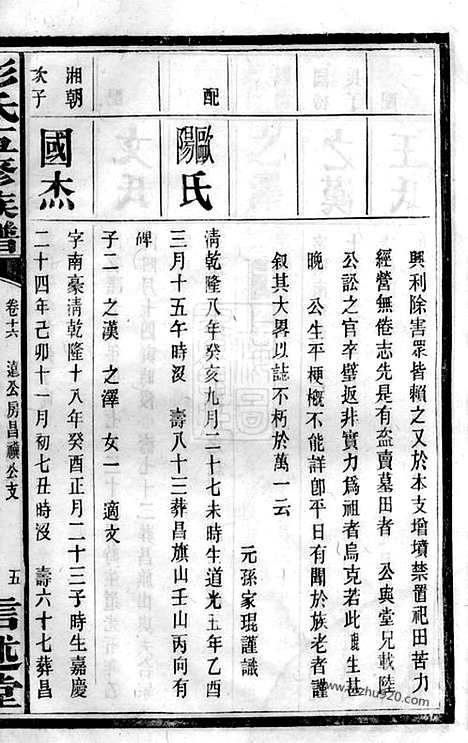 興利除害眾皆賴之又於本支增墳禁置祀田苦力
經營無倦志先是有盜賣墓田者 公與堂兄載陸
公訟之官卒璧返非實力為祖者烏克若此鹿生甚
晚 公生平梗概不能詳卽平日有聞於族老者謹
叙其大畧以誌不朽於萬一云
元孫家琨謹識
配
歐陽氏
清乾隆八年癸亥九月二十七未時生道光五年乙酉
三月十五午時沒 壽八十三葬昌旗山壬山丙向有
碑
子二 之漢 之澤 女一 適文
湘朝次子
國杰
字南豪清乾隆十八年癸酉正月二十三子時生嘉慶
二十四年己卯十一月初七丑時沒 壽六十七葬昌
彭氏五修族譜
卷十六 遠公房昌禎公支
五
信述堂
www.jiazhu920.com